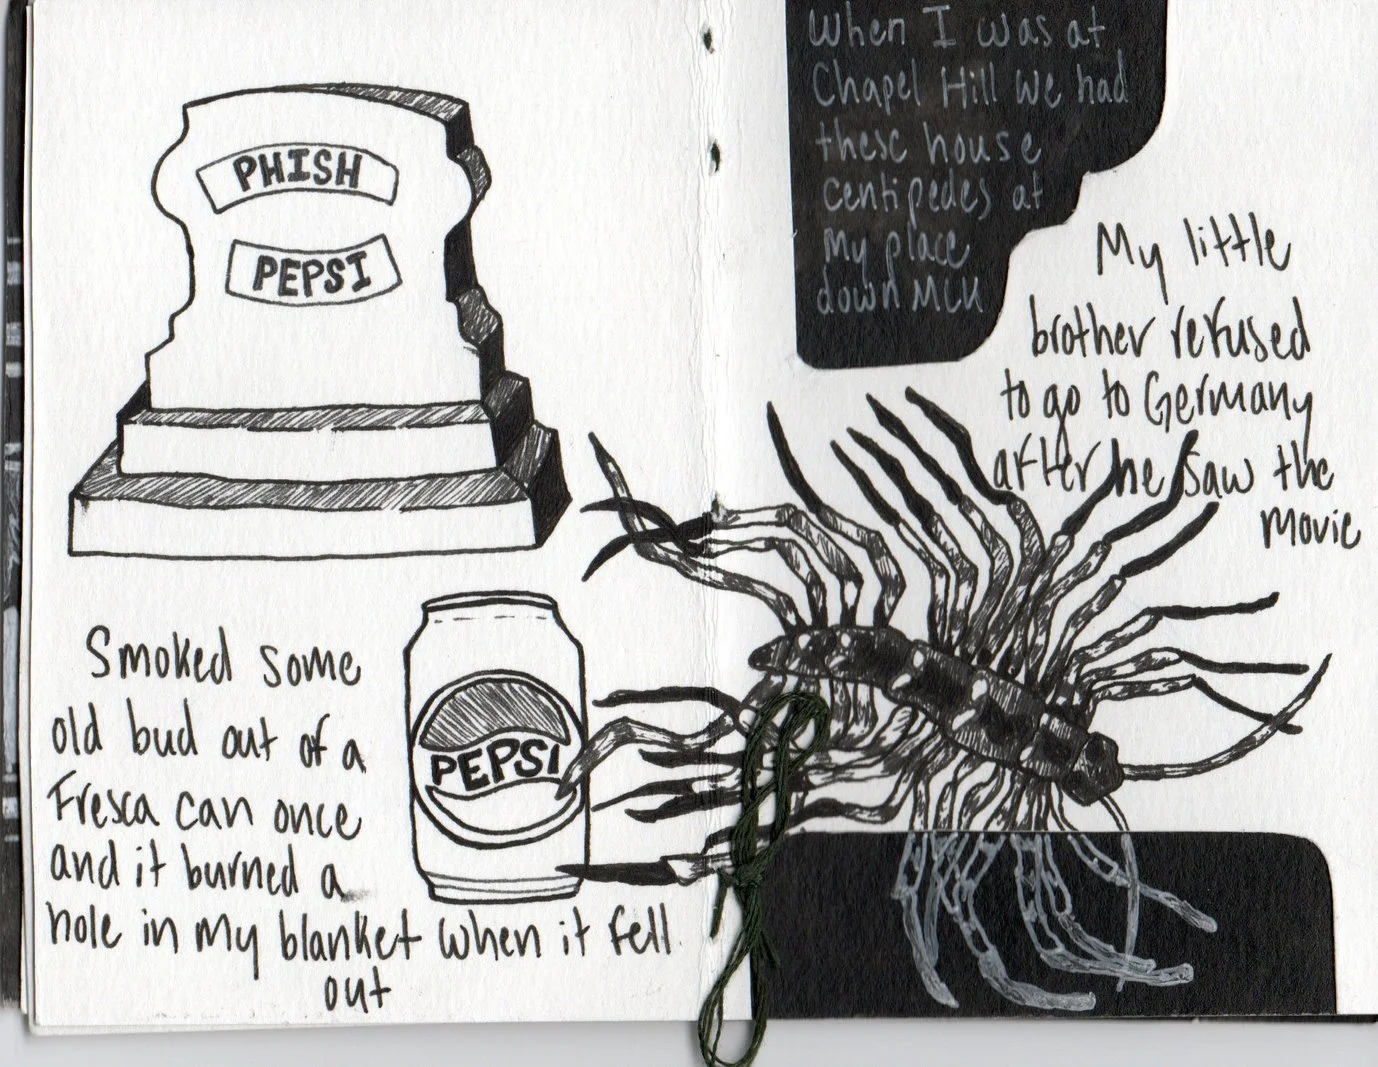 PHISH
PEPSI
Smoked some
old bud out of a
Fresca can once
and it burned a
hole in my blanket when it fell
out
PEPSI
When I was at
Chapel Hill we had
these house
centipedes at
my place
down MLK
My little
brother refused
to go to Germany
after he saw the
movie